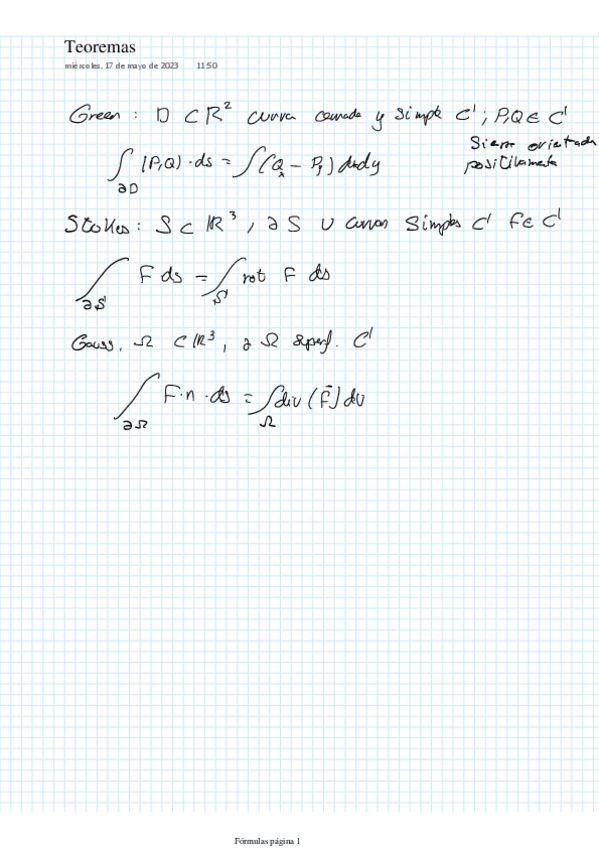 Teoremas
miércoles, 17 de mayo de 2023 11:50
Green : D ⊂ ℝ² curva cerrada y simple C¹ ; P,Q ∈ C¹
Siempre orientada
positivamente
∫_∂D (P,Q) · ds = ∫ (Q_x − P_y) dxdy
Stokes : S ⊂ ℝ³ , ∂S ∪ curvas simples C¹ F ∈ C¹
∫_∂S F ds = ∫_S rot F ds
Gauss, Ω ⊂ ℝ³ , ∂Ω superf. C¹
∫_∂Ω F·n · ds = ∫_Ω div (F̄) dV
Fórmulas página 1